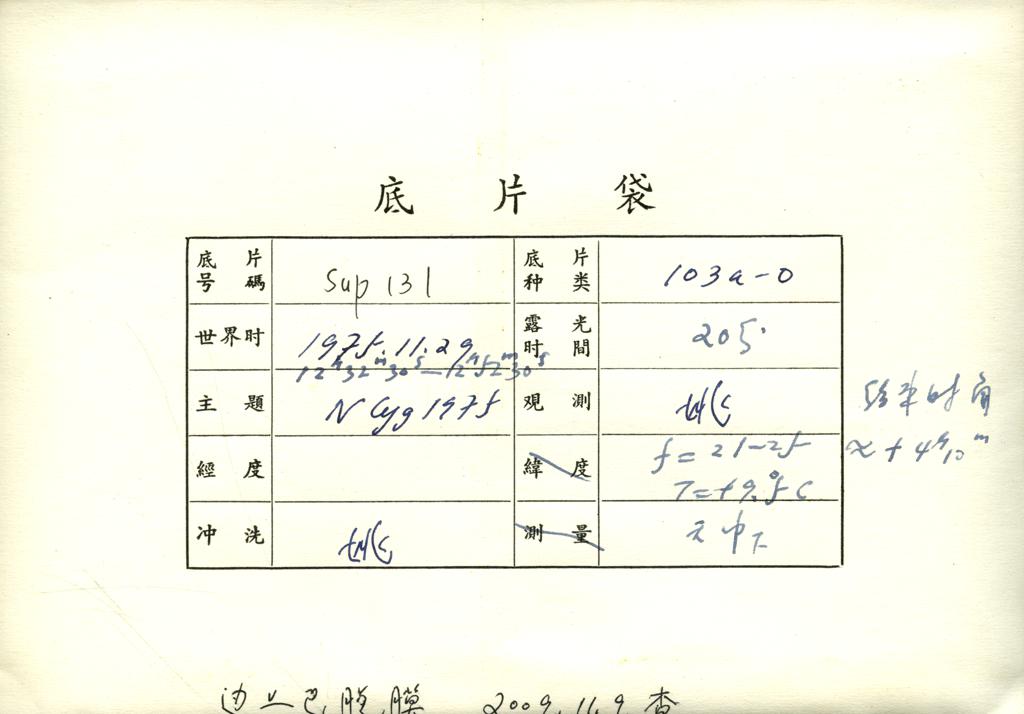 底片袋
底片号碼 Sup 131 底片种类 103a-O
世界时 1975.11.29 露光时間 205.
12h32m30s—12h52m30s
主題 N Cyg 1975 观測
經度 緯度 f = 21-25
T = +9.°5 C
冲洗 測量
时角
+ 4h10m
边上已脱膜 2009.11.9 查